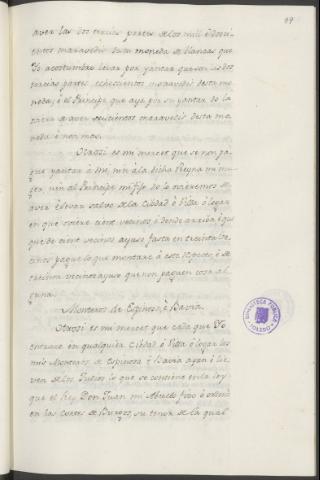 89
aver las dos tercias partes de los mill è docui-
entos maravedis desta moneda de blancas que
Yo acostumbro levar por yantar que son las dos
tercias partes ochocientos maravedis desta mo-
neda; è el Principe que aya por su yantar do lo
oviere de aver seiscientos maravedis desta mo-
neda è non mas.
Otrossi es mi merced que se non pa-
gue yantar à mi, nin à la dicha Reyna mi mu-
ger, nin al Principe mi fijo do lo ovieremos de
aver è levar salvo de la Ciudad ò Villa ò logar
en que oviere cient vecinos, è dende arriba è que
que de cient vecinos ayuso fasta en treinta ve-
cinos pague lo que montare à este respecto, è de
treinta vecinos ayuso que non paguen cosa al-
guna.
Monteros de Espinosa, è Bavia.
Otrossi es mi merced que cada que Yo
entrare en qualquier Ciudad ò Villa ò logar los
mis Monteros de Espinosa è Bavia ayan è lie-
ven de los Judios lo que se contiene en la ley
que el Rey Don Juan mi Abuelo fizo è ordenò
en las Cortes de Burgos, su tenor de la qual
BIBLIOTECA PUBLICA
TOLEDO